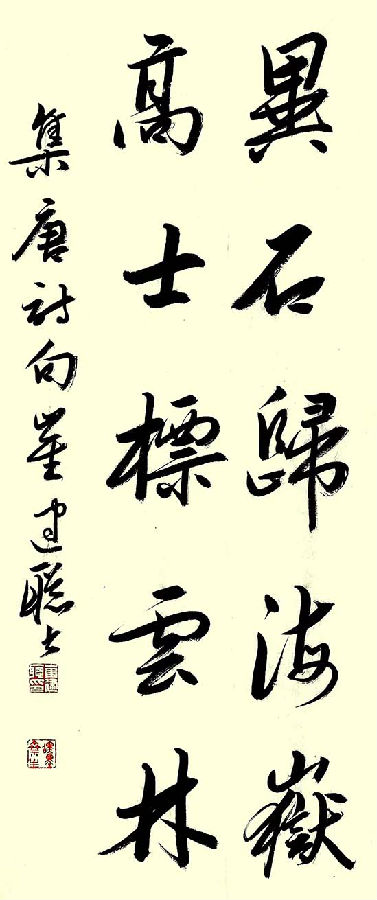 異石歸海嶽
高士標雲林
集唐詩句崔建聰書